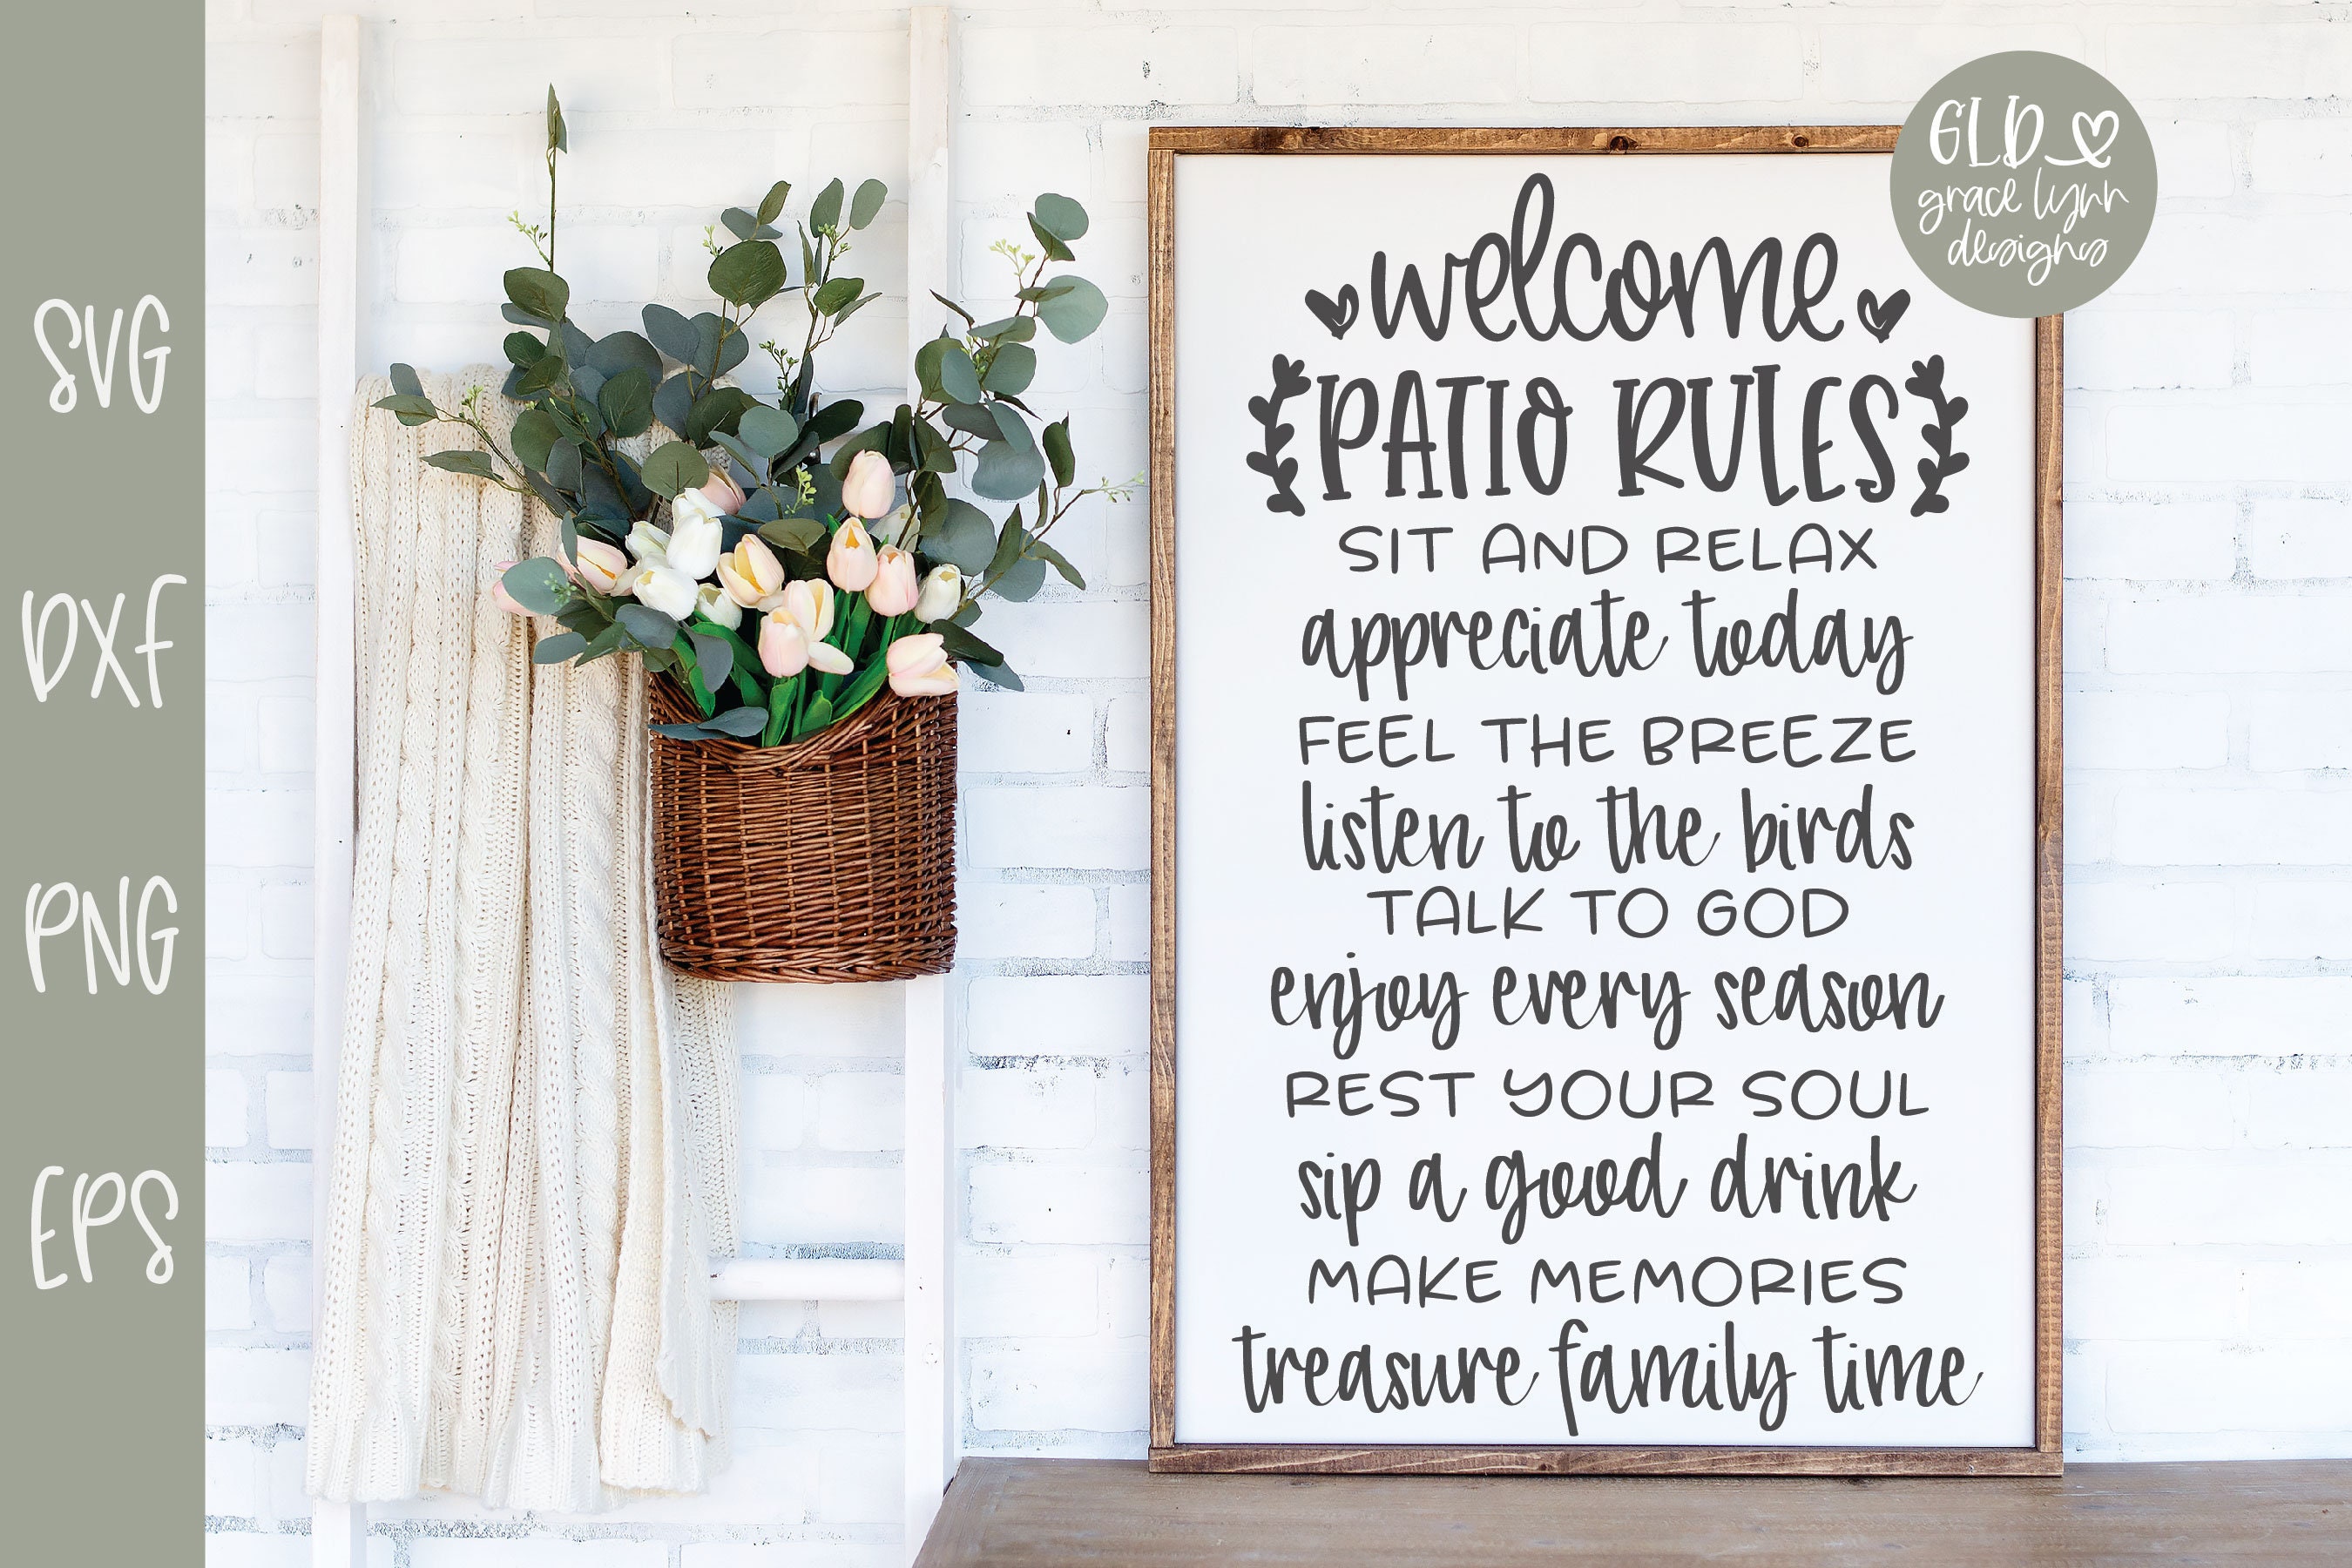 SVG
DXF
PNG
EPS
GLD
grace lynn
designs
welcome
PATIO RULES
SIT AND RELAX
appreciate today
FEEL THE BREEZE
listen to the birds
TALK TO GOD
enjoy every season
REST YOUR SOUL
sip a good drink
MAKE MEMORIES
treasure family time